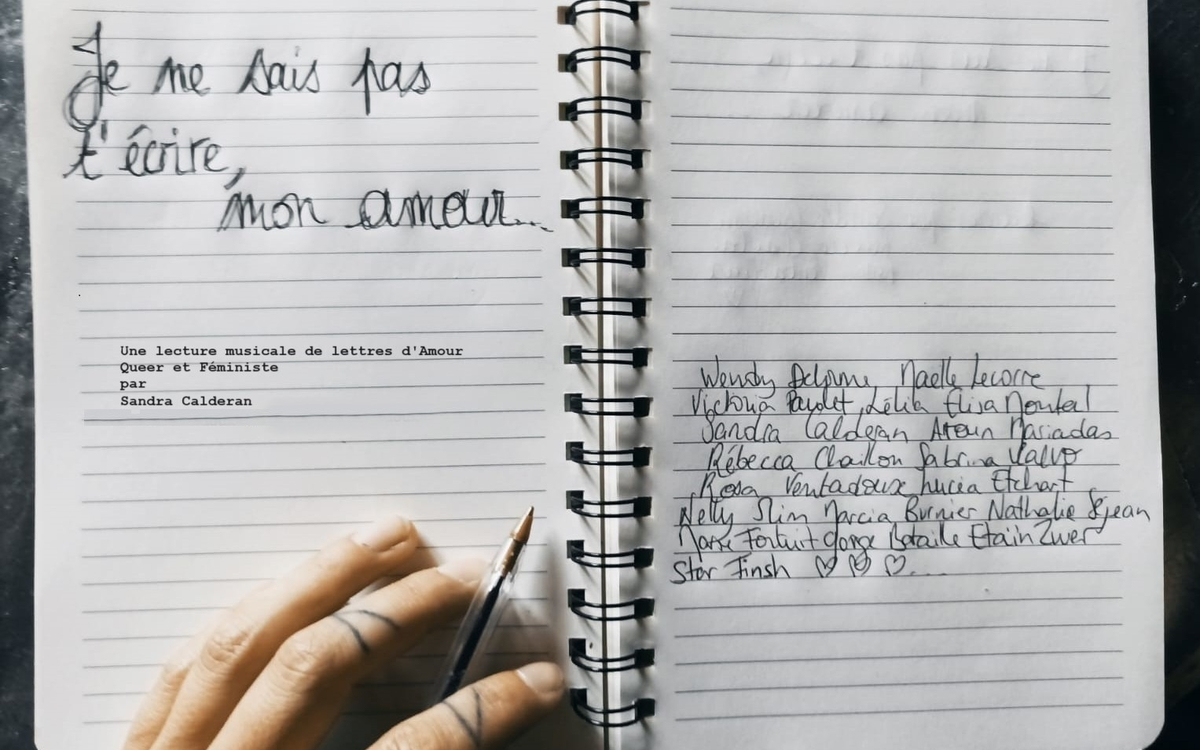 Je ne sais pas
t'écrire,
mon amour...
Une lecture musicale de lettres d'Amour
Queer et Féministe
par
Sandra Calderan
Wendy Delorme Naelle Lecorre
Victoria Paulet, Lélia Elisa Monteil
Sandra Calderan Aroun Mariadas
Rébecca Chaillon Sabrina Calvo
Rosa Ventadoux Lucia Etchart
Nelly Slim Marcia Burnier Nathalie Sejean
Marie Fortuit George Bataille Etaïn Zwer
Star Finsh ♡ ♡ ♡....